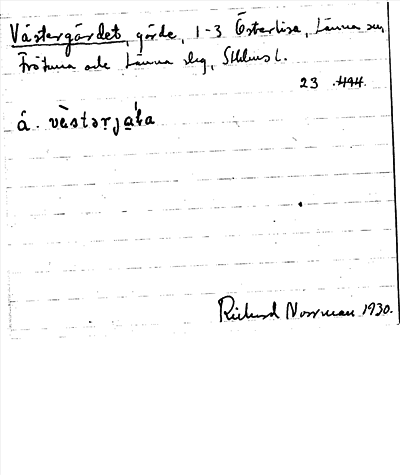 Västergärdet, gärde, 1-3 Österlisa, Länna sn,
Frötuna och Länna slg, Sthlms l.
23 444
á. vèstərjaḷa
Richard Norrman 1930.